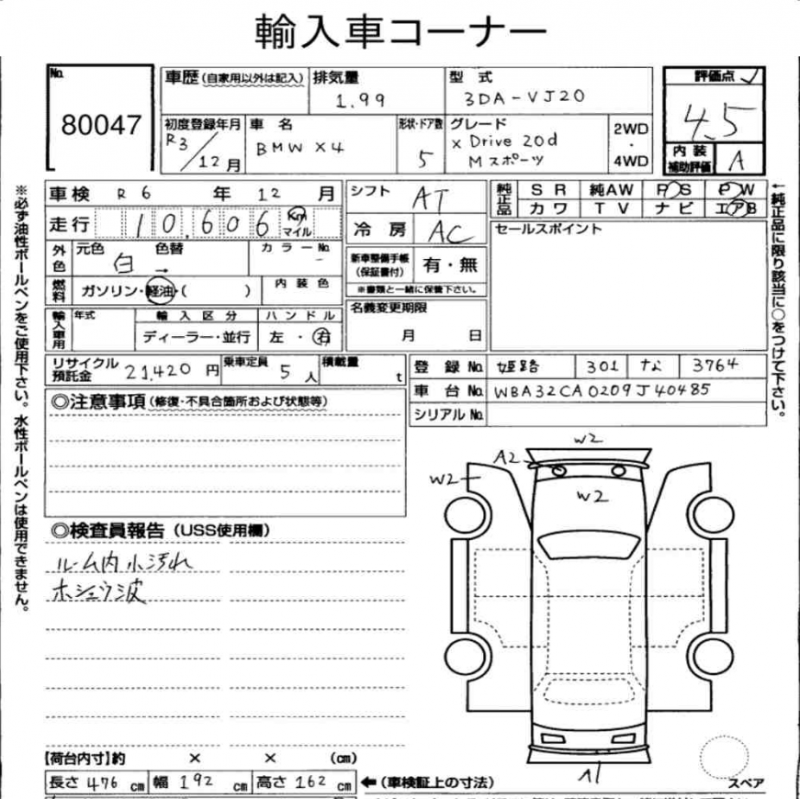 輸入車コーナー
No. 80047
車歴 (自家用以外は記入) 排気量 1.99 型式 3DA-VJ20 評価点 4.5
初度登録年月 R3/12月 車名 BMW X4 形状・ドア数 5 グレード x Drive 20d Mスポーツ 2WD・4WD 内装補助評価 A
車検 R6年12月 シフト AT 純正品 SR 純AW PS PW
走行 10,606 Km マイル 冷房 AC カワ TV ナビ エアB
外色 元色 白 色替 → カラーNo. - 新車整備手帳(保証書付) 有・無 セールスポイント
燃料 ガソリン・軽油・( ) 内装色 ※書類と一緒に保管下さい。
輸入車用 年式 輸入区分 ディーラー・並行 ハンドル 左・右 名義変更期限 月 日
リサイクル預託金 21,420円 乗車定員 5人 積載量 t 登録No. 姫路 301 な 3764
車台No. WBA32CA0209J40485
シリアルNo.
◎注意事項(修復・不具合箇所および状態等)
W2
A2
W2
W2
◎検査員報告(USS使用欄)
ルーム内小汚れ
ホショウ波
A1
スペア
【荷台内寸】約 × × (cm)
長さ 476 cm 幅 192 cm 高さ 162 cm ←(車検証上の寸法)
※必ず油性ボールペンをご使用下さい。水性ボールペンは使用できません。
←純正品に限り該当に○をつけて下さい。